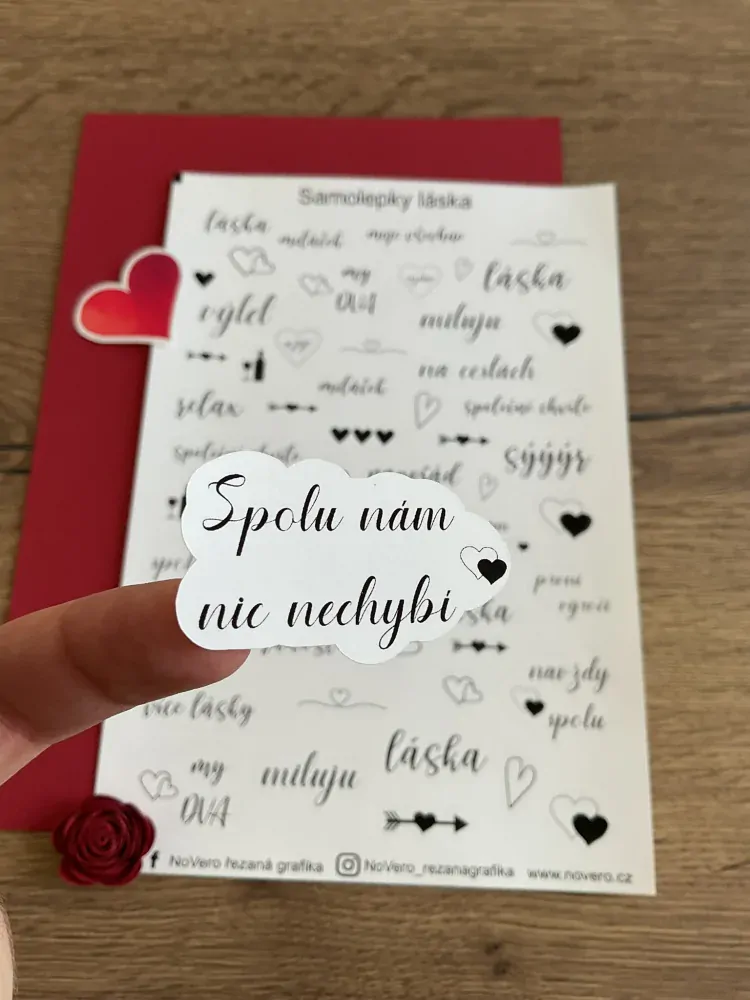 Samolepky láska
láska miláček moje všechno
my DVA láska
výlet miluju
miláček na cestách
relax společné chvíle
společné chvíle sýýýr
Spolu nám
nic nechybí
první
výročí
navždy
spolu
více lásky
láska
my
DVA
miluju
NoVero řezaná grafika NoVero_rezanagrafika www.novero.cz